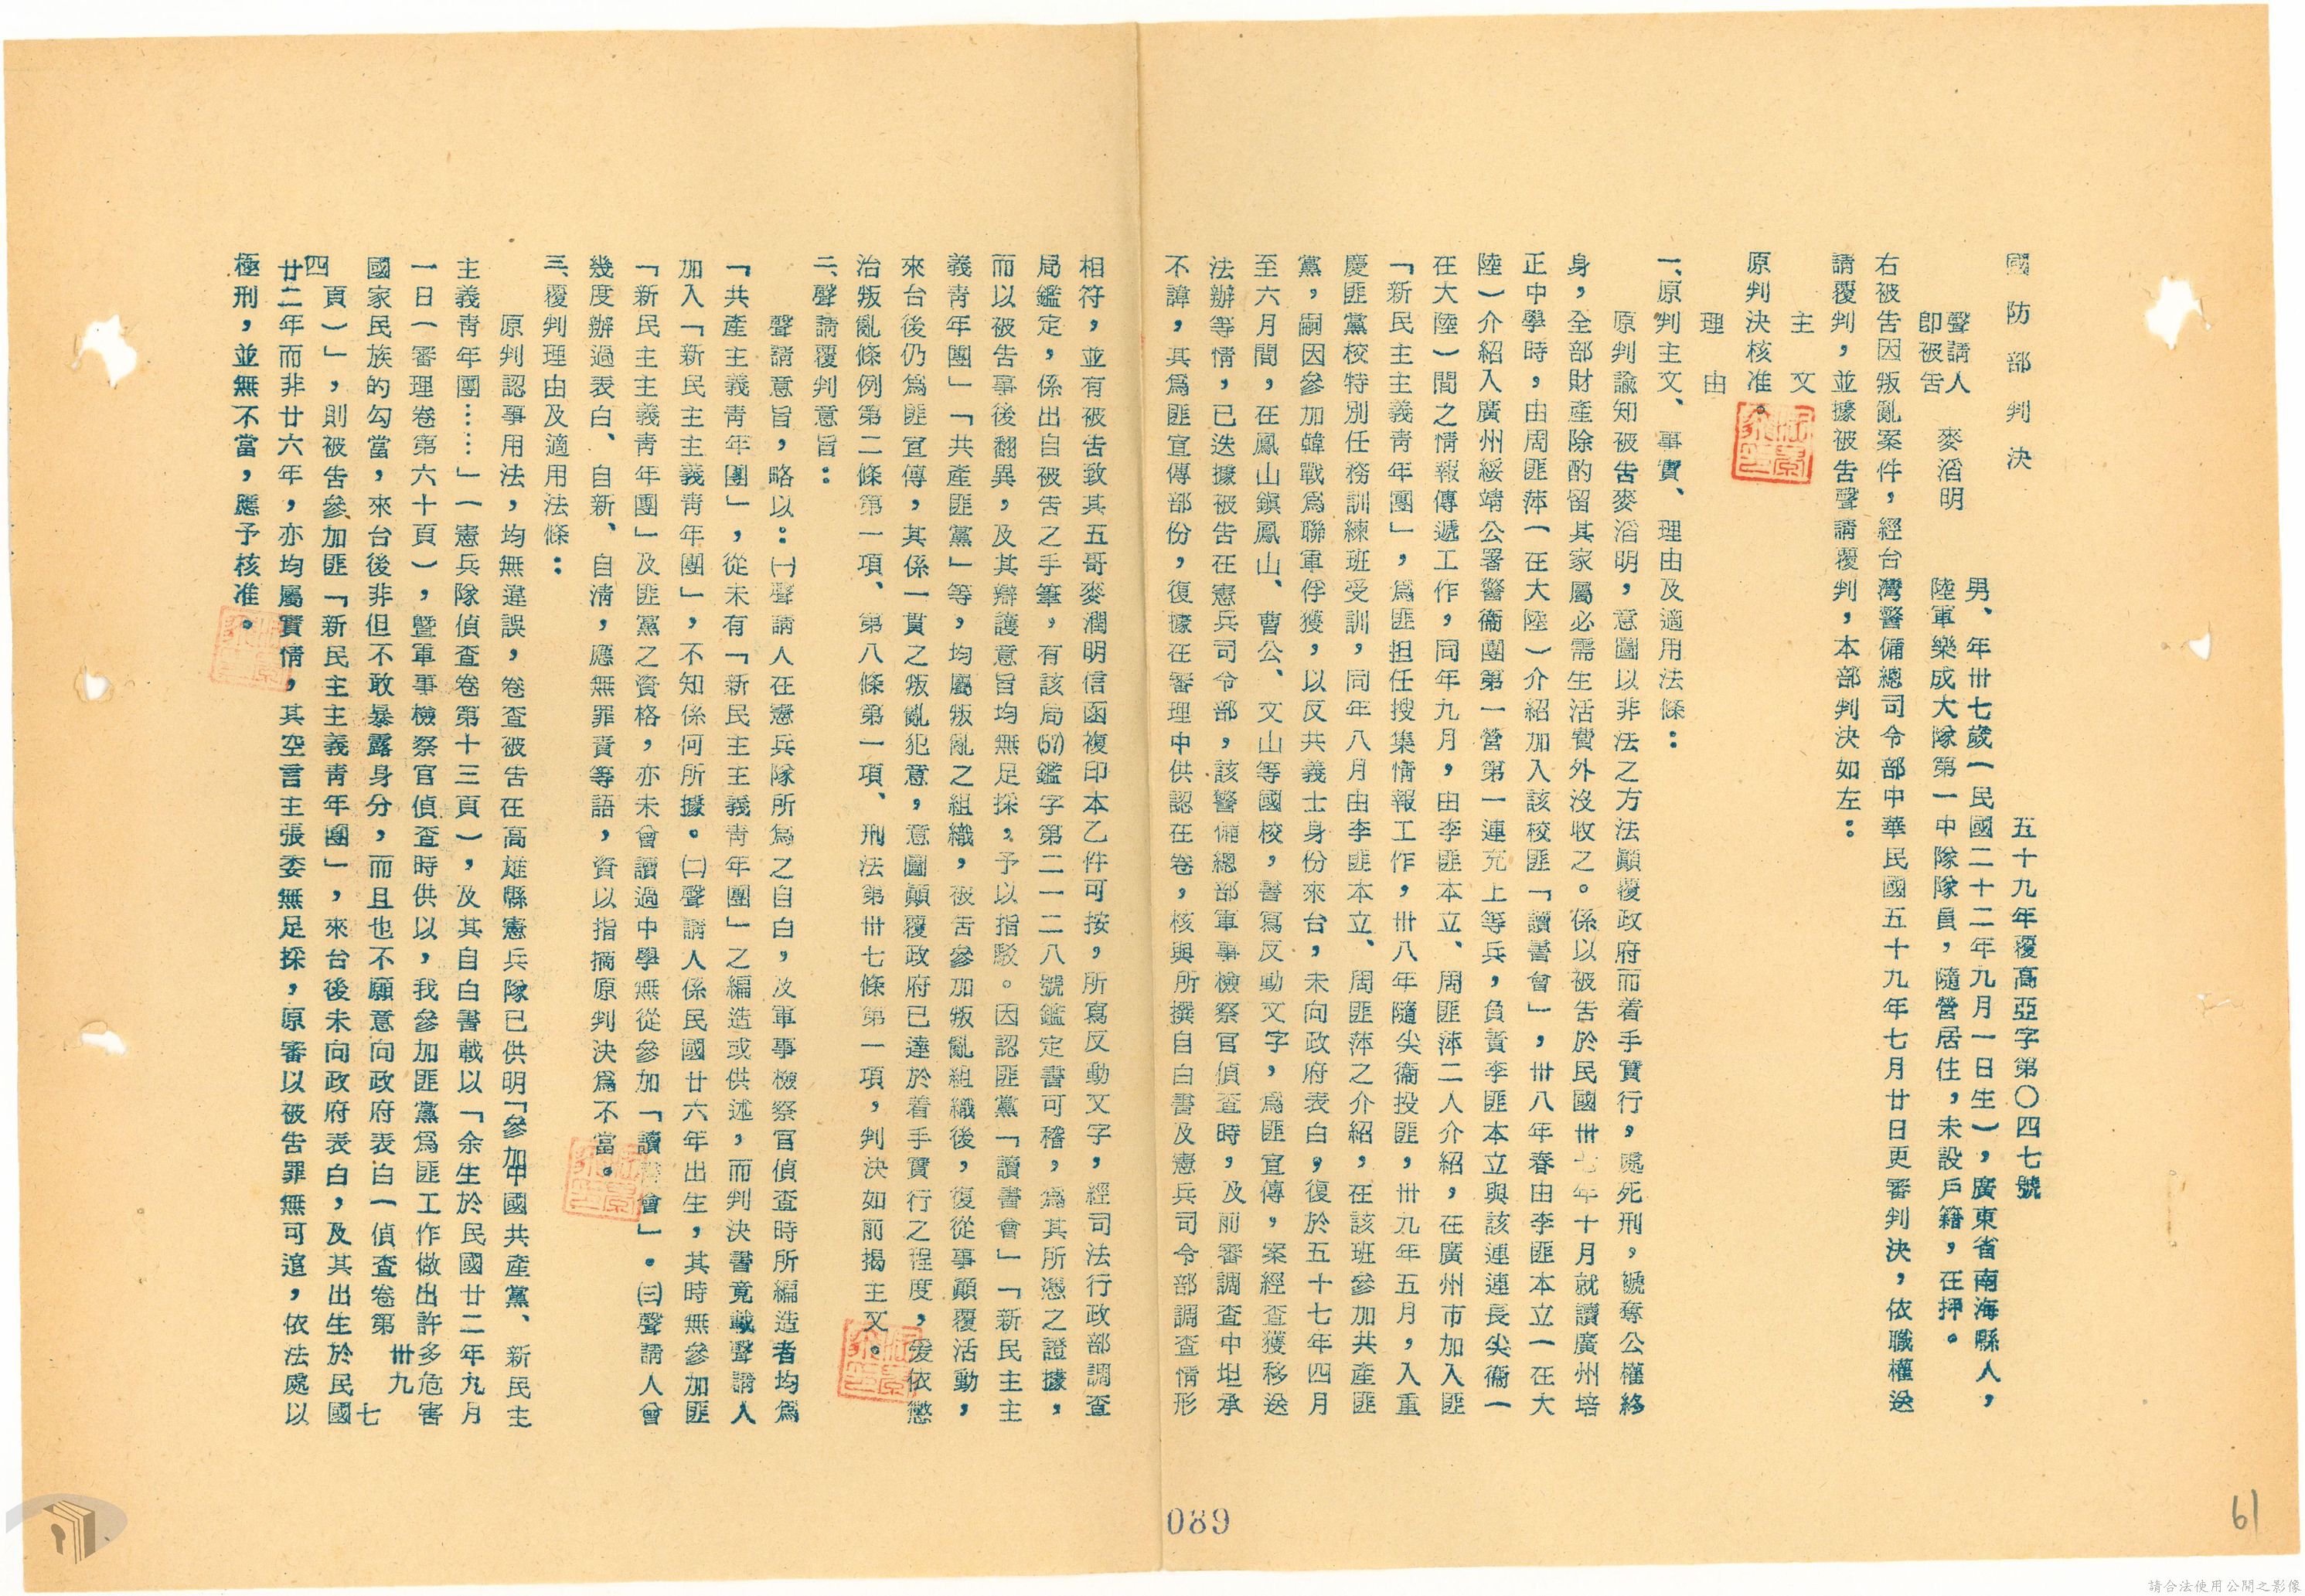 國防部判決
五十九年覆高亞字第〇四七號
聲請人
即被告
麥滔明
男、年卅七歲(民國二十二年九月一日生),廣東省南海縣人,
陸軍樂成大隊第一中隊隊員,隨營居住,未設戶籍,在押。
右被告因叛亂案件,經台灣警備總司令部中華民國五十九年七月廿日更審判決,依職權送
請覆判,並據被告聲請覆判,本部判決如左:
主文
原判決核准。
理由
一、原判主文、事實、理由及適用法條:
原判諭知被告麥滔明,意圖以非法之方法顛覆政府而着手實行,處死刑,褫奪公權終
身,全部財產除酌留其家屬必需生活費外沒收之。係以被告於民國卅七年十月就讀廣州培
正中學時,由周匪萍(在大陸)介紹加入該校匪「讀書會」,卅八年春由李匪本立(在大
陸)介紹入廣州綏靖公署警衞團第一營第一連充上等兵,負責李匪本立與該連連長尖衞(
在大陸)間之情報傳遞工作,同年九月,由李匪本立、周匪萍二人介紹,在廣州市加入匪
「新民主主義青年團」,爲匪担任搜集情報工作,卅八年隨尖衞投匪,卅九年五月,入重
慶匪黨校特別任務訓練班受訓,同年八月由李匪本立、周匪萍之介紹,在該班參加共產匪
黨,嗣因參加韓戰爲聯軍俘獲,以反共義士身份來台,未向政府表白,復於五十七年四月
至六月間,在鳳山鎭鳳山、曹公、文山等國校,書寫反動文字,爲匪宣傳,案經查獲移送
法辦等情,已迭據被告在憲兵司令部,該警備總部軍事檢察官偵查時,及前審調查中坦承
不諱,其爲匪宣傳部份,復據在審理中供認在卷,核與所撰自白書及憲兵司令部調查情形
相符,並有被告致其五哥麥潤明信函複印本乙件可按,所寫反動文字,經司法行政部調查
局鑑定,係出自被告之手筆,有該局(57)鑑字第二一二八號鑑定書可稽,爲其所憑之證據,
而以被告事後翻異,及其辯護意旨均無足採,予以指駁。因認匪黨「讀書會」「新民主主
義青年團」「共產匪黨」等,均屬叛亂之組織,被告參加叛亂組織後,復從事顛覆活動,
來台後仍爲匪宣傳,其係一貫之叛亂犯意,意圖顛覆政府已達於着手實行之程度,爰依懲
治叛亂條例第二條第一項、第八條第一項、刑法第卅七條第一項,判決如前揭主文。
二、聲請覆判意旨:
聲請意旨,略以:㈠聲請人在憲兵隊所爲之自白,及軍事檢察官偵查時所編造者均爲
「共產主義青年團」,從未有「新民主主義青年團」之編造或供述,而判決書竟載聲請人
加入「新民主主義青年團」,不知係何所據。㈡聲請人係民國廿六年出生,其時無參加匪
「新民主主義青年團」及匪黨之資格,亦未會讀過中學無從參加「讀書會」。㈢聲請人曾
幾度辦過表白、自新、自清,應無罪責等語,資以指摘原判決爲不當。
三、覆判理由及適用法條:
原判認事用法,均無違誤,卷查被告在高雄縣憲兵隊已供明「參加中國共產黨、新民主
主義青年團……」(憲兵隊偵查卷第十三頁),及其自白書載以「余生於民國廿二年九月
一日(審理卷第六十頁),暨軍事檢察官偵查時供以,我參加匪黨爲匪工作做出許多危害
國家民族的勾當,來台後非但不敢暴露身分,而且也不願意向政府表白(偵查卷第卅九七
四頁)」,則被告參加匪「新民主主義青年團」,來台後未向政府表白,及其出生於民國
廿二年而非廿六年,亦均屬實情,其空言主張委無足採,原審以被告罪無可逭,依法處以
極刑,並無不當,應予核准。
089
61
請合法使用公開之影像